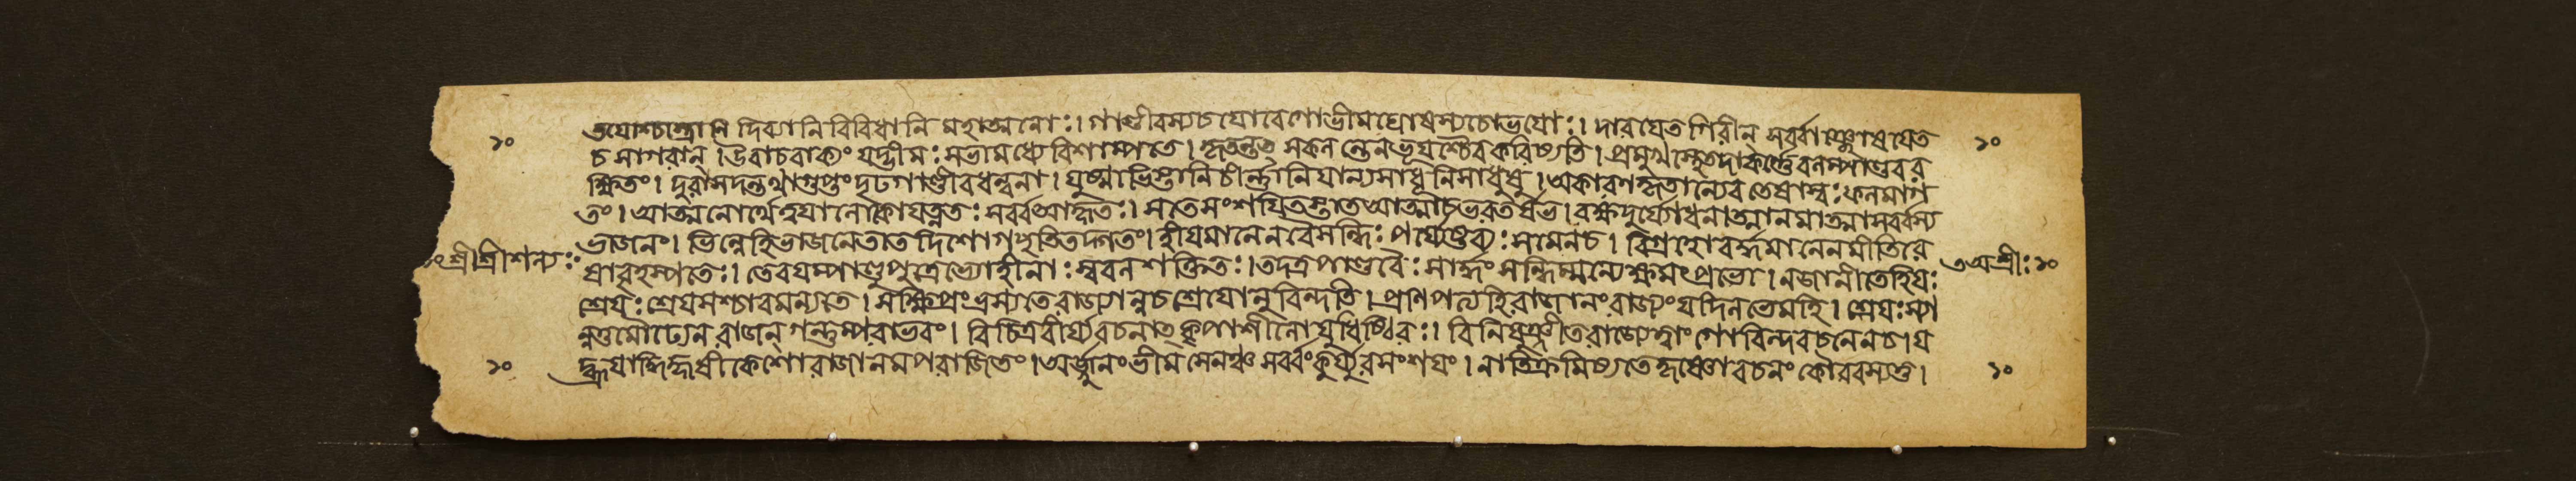 ১০
তযোশ্চাস্ত্রাণি দিব্যানি বিবিধানি মহাত্মনোঃ। গাণ্ডীবস্যচঘোষেণোভীমঘোষস্যচোভযোঃ। দারযেত গিরীন্ সর্ব্বাঞ্ছোষযেত
১০
চ সাগরান্। উবাচবাক্যং যদ্ভীমঃ সভামধ্যে বিশাম্পতে। কৃতন্তৎ সকলন্তেনভূযশ্চৈবকরিষ্যতি। প্রমুখস্থেতদাকর্ণেবলম্পাণ্ডবর
ক্ষিতং। দুরাসদন্তথাগুপ্তংদৃঢগাণ্ডীবধন্বনা। যুষ্মাভিস্তানিচীর্ন্নানিযান্যসাধূনিসাধুষু। অকারণকৃতান্যেবতেষাম্বঃফলমাগ
তং। আত্মনোর্থেত্বযালোকোযত্নতঃ সর্ব্বআহৃতঃ। সতেসংশযিতস্তাতআত্মাচভরতর্ষভ। রক্ষদুর্য্যোধনাত্মানমাত্মাসর্ব্বস্য
ভাজনং। ভিন্নেহিভাজনেতাতদিশোগচ্ছতিতদ্গতং। হীযমানেনবৈসন্ধিঃ পর্য্যেষ্টব্যঃ সমেনচ। বিগ্রহোবর্দ্ধমানেননীতিরে
শ্রীশ্রীশল্যঃ
তঅশ্রীঃ ১০
ষাবৃহস্পতেঃ। তেবযম্পাণ্ডুপুত্রেভ্যোহীনাঃ স্ববলশক্তিতঃ। তদত্রপাণ্ডবৈঃ সার্দ্ধং সন্ধিম্মন্যেক্ষমংপ্রভো। নজানীতেহিযঃ
শ্রেযঃ শ্রেযসশ্চাবমন্যতে। সক্ষিপ্রংভ্রস্যতেরাজ্যান্নচশ্রেযোনুবিন্দতি। প্রণিপত্যহিরাজানংরাজ্যংযদিলভেমহি। শ্রেযঃস্যা
ন্নতুমৌঢ্যেনরাজন্ গন্তুম্পরাভবং। বিচিত্রবীর্য্যবচনাৎ কৃপাশীলোযুধিষ্ঠিরঃ। বিনিযুঞ্জীতরাজ্যেত্বাংগোবিন্দবচনেনচ। য
১০
দ্ব্রূযাদ্ধিহৃষীকেশোরাজানমপরাজিতং। অর্জ্জুনংভীমসেনঞ্চ সর্ব্বংকুর্য্যুরসংশযং। নাতিক্রমিষ্যতেকৃষ্ণোবচনংকৌরবস্যতু।
১০